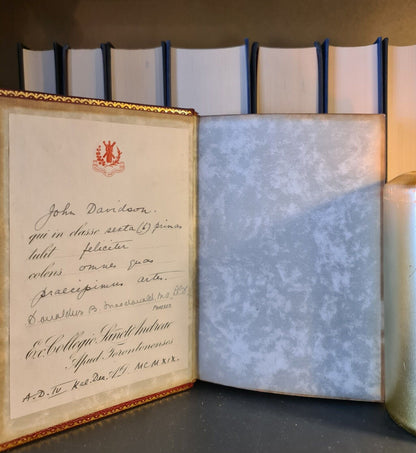 John Davidson.
qui in classe sexta (b) primas
tulit feliciter
colens omnes quas
praecipimus artes.
Donaldus B. Macdonald, M.A.
PRAESES.
E Collegio Sancti Andreae
Apud Torontonenses
A.D. IV Kal. Dec. A.D. MCMXIX.